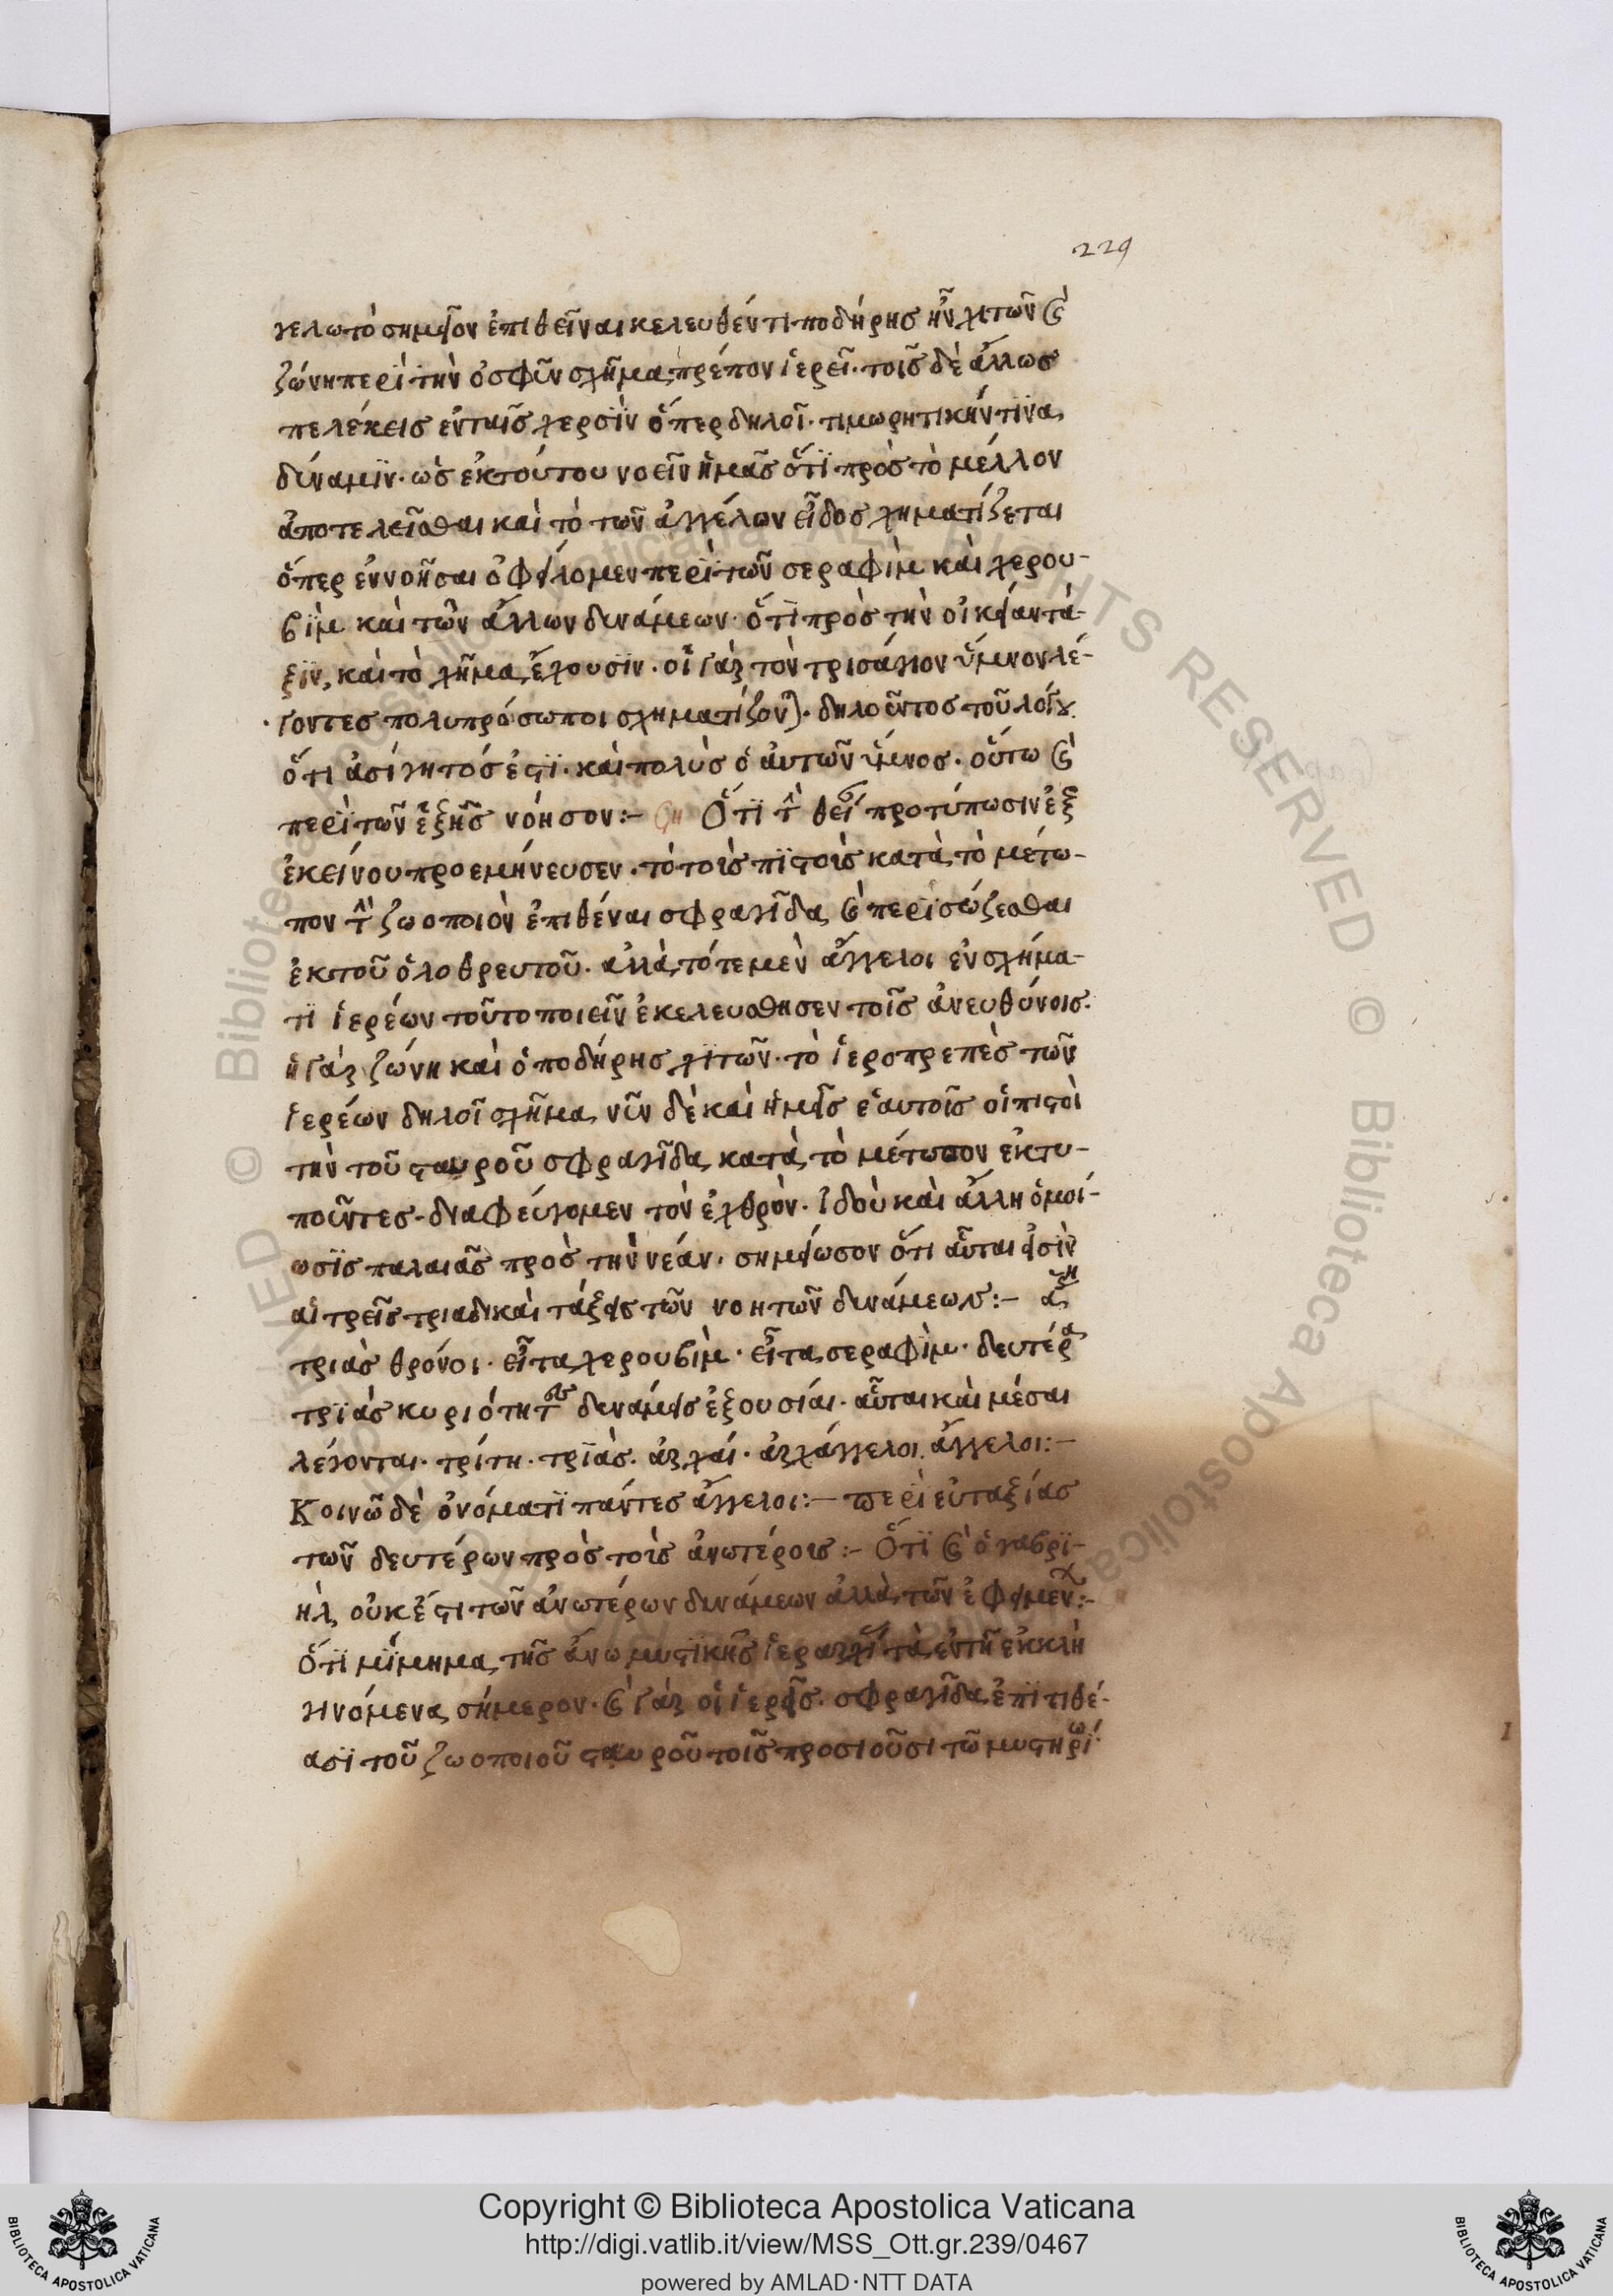 229
γελω τὸ σημεῖον ἐπιθεῖναι κελευθέντι ποδήρης ἦν χιτῶν καὶ
ζώνη περὶ τὴν ὀσφῦν σχῆμα πρέπον ἱερεῖ. τοῖς δὲ ἄλλως
πελέκεις ἐν ταῖς χερσὶν ὅπερ δηλοῖ. τιμωρητικήν τινα
δύναμιν. ὡς ἐκ τούτου νοεῖν ἡμᾶς ὅτι πρὸς τὸ μέλλον
ἀποτελεῖσθαι καὶ τὸ τῶν ἀγγέλων εἶδος χηματίζεται
ὅπερ ἐννοῆσαι ὀφείλομεν περὶ τῶν σεραφὶμ καὶ χερου-
βὶμ καὶ τῶν ἄλλων δυνάμεων. ὅτι πρὸς τὴν οἰκείαν τά-
ξιν, καὶ τὸ χῆμα ἔχουσιν. οἱ γὰρ τὸν τρισάγιον ὕμνον λέ-
γοντες πολυπρόσωποι σχηματίζονται. δηλοῦντος τοῦ λόγου
ὅτι ἀσίγητός ἐστι. καὶ πολὺς ὁ αὐτῶν ὕμνος. οὕτω καὶ
περὶ τῶν ἑξῆς νόησον:- ση Ὅτι τὴν θείαν προτύπωσιν ἐξ
ἐκείνου προεμήνευσεν. τὸ τοῖς πιστοῖς κατὰ τὸ μέτω-
πον τὴν ζωοποιὸν ἐπιθέναι σφραγῖδα καὶ περισώζεσθαι
ἐκ τοῦ ὁλοθρευτοῦ. ἀλλὰ τότε μὲν ἄγγελοι ἐν σχήμα-
τι ἱερέων τοῦτο ποιεῖν ἐκελεύσθησεν τοῖς ἀνευθύνοις.
ἡ γὰρ ζώνη καὶ ὁ ποδήρης χιτῶν. τὸ ἱεροπρεπὲς τῶν
ἱερέων δηλοῖ σχῆμα νῦν δὲ καὶ ἡμεῖς ἑαυτοῖς οἱ πιστοὶ
τὴν τοῦ σταυροῦ σφραγῖδα κατὰ τὸ μέτωπον ἐκτυ-
ποῦντες. διαφεύγομεν τὸν ἐχθρὸν. ἰδοὺ καὶ ἄλλη ὁμοί-
ωσις παλαιᾶς πρὸς τὴν νέαν. σημείωσον ὅτι αὗται εἰσὶν
αἱ τρεῖς τριαδικαὶ τάξεις τῶν νοητῶν δυνάμεως:- α
τριὰς θρόνοι. εἶτα χερουβὶμ. εἶτα σεραφὶμ. δευτέρα
τριὰς κυριότητες δυνάμεις ἐξουσίαι. αὗται καὶ μέσαι
λέγονται. τρίτη. τριὰς. ἀρχαί. ἀρχάγγελοι. ἄγγελοι:-
Κοινῶ δὲ ὀνόματι πάντες ἄγγελοι:- περὶ εὐταξίας
τῶν δευτέρων πρὸς τοῖς ἀνωτέροις:- Ὅτι καὶ ὁ γαβρι-
ὴλ οὐκ ἔστι τῶν ἀνωτέρων δυνάμεων ἀλλὰ τῶν ἐφειμένων:-
Ὅτι μίμημα τῆς ἄνω μυστικῆς ἱεραρχίας τὰ ἐν τῆ ἐκκλη
γινόμενα σήμερον. καὶ γὰρ οἱ ἱερεῖς. σφραγῖδα ἐπιτιθέ-
ασι τοῦ ζωοποιοῦ σταυροῦ τοῖς προσιοῦσι τῶ μυστηρίω